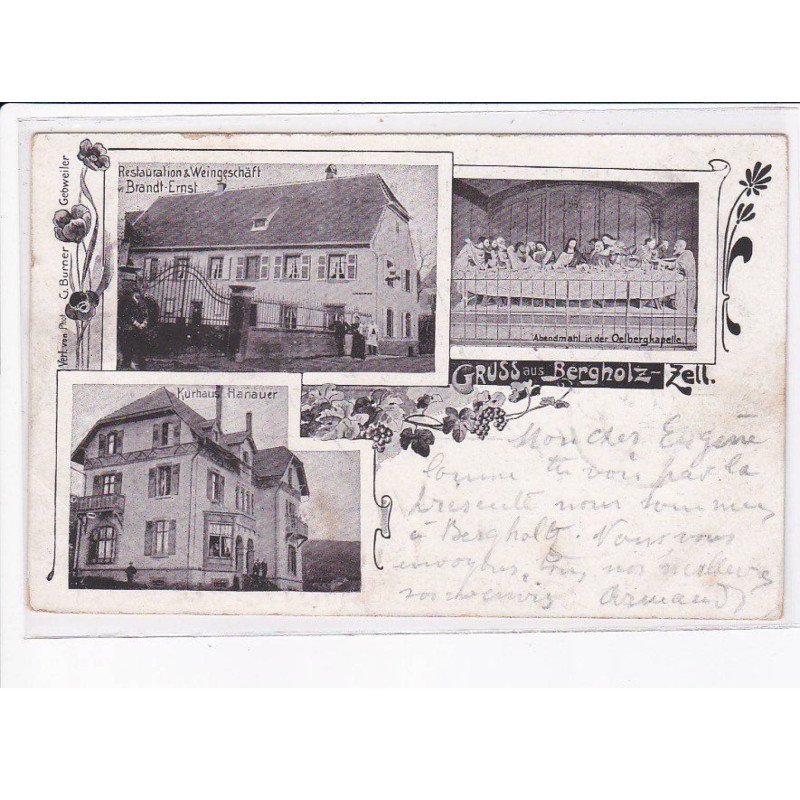 Verl. von Phot. G. Burner Gebweiler
Restauration & Weingeschäft
v. Brandt-Ernst
Abendmahl in der Oelbergkapelle.
Gruss aus Bergholz-Zell.
Kurhaus Hanauer
Mon cher Eugène
Comme tu vois par la
présente nous sommes
à Bergholtz. Nous vous
envoyons tous nos meilleurs
souvenirs Armand